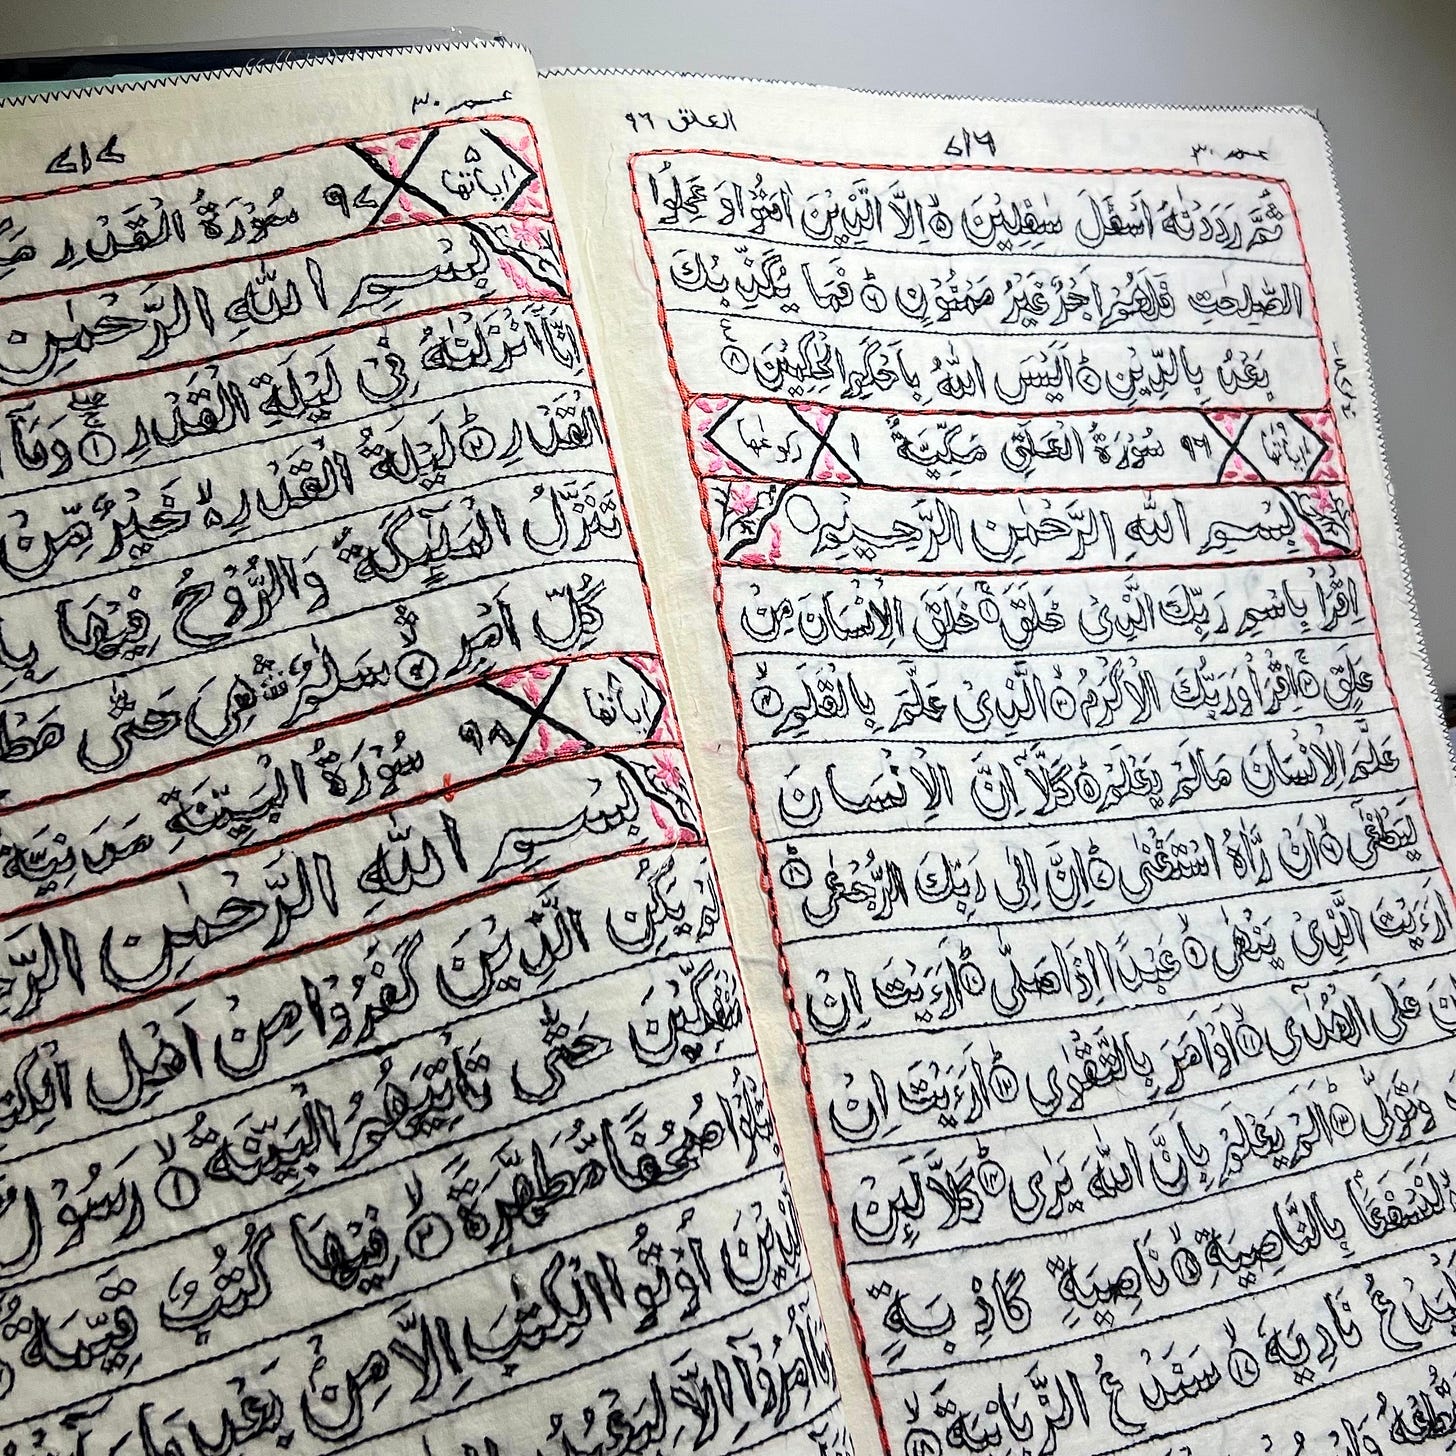 عم ٣٠ ٧١٦ العلق ٩٦
ثُمَّ رَدَدْنٰهُ اَسْفَلَ سٰفِلِيْنَ ۵ اِلَّا الَّذِيْنَ اٰمَنُوْا وَعَمِلُوا
الصّٰلِحٰتِ فَلَهُمْ اَجْرٌ غَيْرُ مَمْنُوْنٍ ۶ فَمَا يُكَذِّبُكَ
بَعْدُ بِالدِّيْنِ ۷ اَلَيْسَ اللّٰهُ بِاَحْكَمِ الْحٰكِمِيْنَ ۸
اٰيَاتُهَا ٩٦ سُوْرَةُ الْعَلَقِ مَكِّيَّةٌ ١ رُكُوْعُهَا
بِسْمِ اللّٰهِ الرَّحْمٰنِ الرَّحِيْمِ
اِقْرَاْ بِاسْمِ رَبِّكَ الَّذِيْ خَلَقَ ۱ خَلَقَ الْاِنْسَانَ مِنْ
عَلَقٍ ۲ اِقْرَاْ وَرَبُّكَ الْاَكْرَمُ ۳ الَّذِيْ عَلَّمَ بِالْقَلَمِ ۴
عَلَّمَ الْاِنْسَانَ مَا لَمْ يَعْلَمْ ۵ كَلَّا اِنَّ الْاِنْسَانَ
لَيَطْغٰى ۶ اَنْ رَّاٰهُ اسْتَغْنٰى ۷ اِنَّ اِلٰى رَبِّكَ الرُّجْعٰى ۸
اَرَءَيْتَ الَّذِيْ يَنْهٰى ۹ عَبْدًا اِذَا صَلّٰى ۱۰ اَرَءَيْتَ اِنْ
عَلَى الْهُدٰى ۱۱ اَوْ اَمَرَ بِالتَّقْوٰى ۱۲ اَرَءَيْتَ اِنْ
وَتَوَلّٰى ۱۳ اَلَمْ يَعْلَمْ بِاَنَّ اللّٰهَ يَرٰى ۱۴ كَلَّا لَئِنْ
لَنَسْفَعًا بِالنَّاصِيَةِ ۱۵ نَاصِيَةٍ كَاذِبَةٍ
نَادِيَهٗ ۱۷ سَنَدْعُ الزَّبَانِيَةَ ۱۸
عم ٣٠ ٧١٧
اٰيَاتُهَا ۵ ٩٧ سُوْرَةُ الْقَدْرِ
بِسْمِ اللّٰهِ الرَّحْمٰنِ
اِنَّا اَنْزَلْنٰهُ فِيْ لَيْلَةِ الْقَدْرِ ۱ وَمَا
الْقَدْرِ ۲ لَيْلَةُ الْقَدْرِ خَيْرٌ مِّنْ
تَنَزَّلُ الْمَلٰٓئِكَةُ وَالرُّوْحُ فِيْهَا
كُلِّ اَمْرٍ ۴ سَلٰمٌ هِيَ حَتّٰى
اٰيَاتُهَا ٩٨ سُوْرَةُ الْبَيِّنَةِ مَدَنِيَّةٌ
بِسْمِ اللّٰهِ الرَّحْمٰنِ
لَمْ يَكُنِ الَّذِيْنَ كَفَرُوْا مِنْ اَهْلِ
مُنْفَكِّيْنَ حَتّٰى تَاْتِيَهُمُ الْبَيِّنَةُ ۱ رَسُوْلٌ
يَتْلُوْا صُحُفًا مُّطَهَّرَةً ۲ فِيْهَا كُتُبٌ قَيِّمَةٌ
الَّذِيْنَ اُوْتُوا الْكِتٰبَ اِلَّا مِنْ بَعْدِ